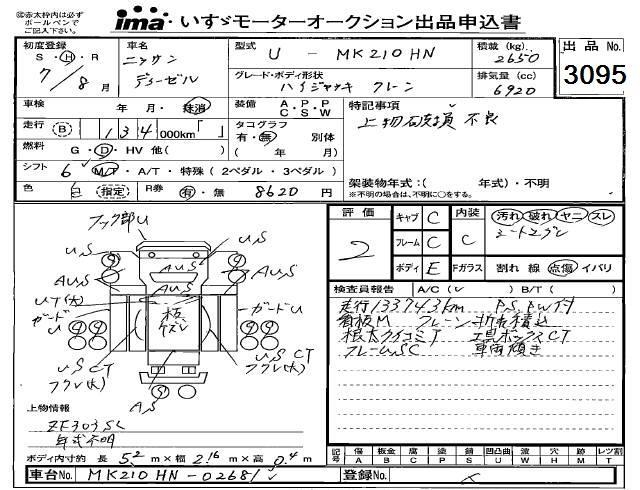 ㊟赤太枠内は必ず
ボールペンで
ご記入下さい。
ima いすゞモーターオークション出品申込書
初度登録
S・H・R
7/8月
車名
ニッサン
ディーゼル
型式
U - MK210HN
積載(kg)
2650
排気量(cc)
6920
出品No.
3095
グレード・ボディ形状
ハイジャッキ クレーン
車検 年 月・抹消
装備 A・P・P C・S・W
特記事項
上物破損 不良
走行 (B) 134,000km「 」
タコグラフ
有・無 別体
( 年 月)
燃料 G・D・HV 他( )
シフト 6 M/T・A/T・特殊(2ペダル・3ペダル)
架装物年式:( 年式)・不明
※不明の場合は、不明に○をする。
色 白(指定)
R券 有・無 8620円
評価
2
キャブ C
フレーム C
ボディ E
内装 C
汚れ 破れ ヤニ スレ
Fガラス 割れ 線 点傷 イバリ
検査員報告 A/C(✓)B/T( )
走行133743km P.S, P.W付
看板M クレーン折れ積込
根太クイコミT 工具ボックスCT
フレームSC 車両傾き
フック部U
U,S
AUS
AUS
AUS
UT(大)
ガードU
ガードU
板ズレ
USCT
フクレ(大)
USCT
フクレ(大)
AS
上物情報
ZF303SL
年式不明
ボディ内寸約 長 5.2m×幅 2.16m×高 0.4m
記号 傷 A 板金 B 腐 C 塗 P 錆 S 凹凸曲 U 波 W 穴 H 欠 M 補 T レツ割 T
車台No. MK210HN-02681
登録No.